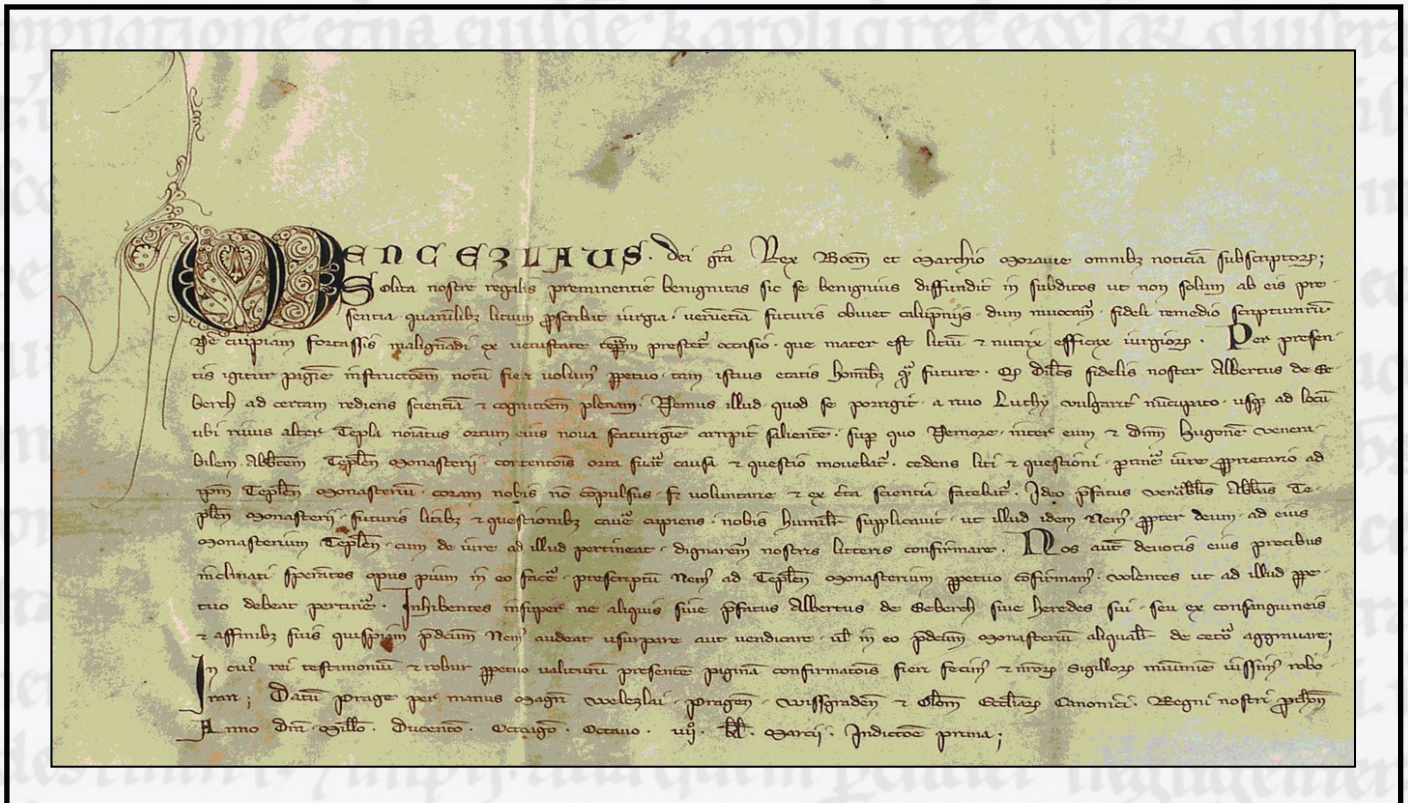 WENCEZLAUS. dei gra Rex Boem et Marchio Moravie omnibz noticia subscriptorz;
Solita nostre regalis preminentie benignitas sic se benignius diffundit in subditos ut non solum ab eis pre
sentia litium iurgia futuris obviet calupniis dum fideli remedio
Ne cuipiam fortassis malignadi ex vetustate prestet occasio que mater est litiu et nutrix efficax iurgiorz. Per presen
tis igitur pagine notu fieri volumus ppetuo tam istius etatis hominibz future. Q dilcs fidelis noster Albertus de Se
berch ad certam rediens scientia et cognitoem plenam Nemus illud quod se porrigit a rivo Luchy vulgarit nucupato usqz ad locu
ubi rivus alter Tepla noiatus ortum eius nova scaturigie arripit saliente. sup quo Nemore inter eum et dnm hugone venera
bilem Abbtem Teplen Monasterii orta causa et questio movebat. cedens liti et questioni iure pprietario ad
ipm Teplen Monasteriu coram nobis no copulsus sz voluntarie et ex cta scientia fatebat. Ideo pfatus venabilis Abbas Te
plen Monasterii futuris litibz et questionibz cupiens nobis humilit supplicavit ut illud idem Nem ppter deum ad eius
Monasterium Teplen cum de iure ad illud pertineat dignarem nostris litteris confirmare. Nos aut devotis eius precibus
inclinati sperates opus pium in eo face prescriptu Nem ad Teplen Monasterium ppetuo cofirmam volentes ut ad illud ppe
tuo debeat pertine. Inhibentes insuper ne aliquis sive pfatus Albertus de Seberch sive heredes sui seu ex consanguineis
et affinibz suis quispiam pdcum Nem audeat usurpare aut vendicare ul in eo pdcum Monasteriu aliqualit de ceto aggravare;
In cui rei testimoniu et robur ppetuo valituru presente pagina confirmatois fieri fecim et nrorz sigillorz munimie iussim robo
rari; Datu Prage per manus Magri Welezlai Pragen Wissgraden et Olom Eccliarz Canonici. Regni nostri pthon
Anno Dni Millo. Ducento. Octuago. Octavo. kl. Marcii. Indictoe prima;